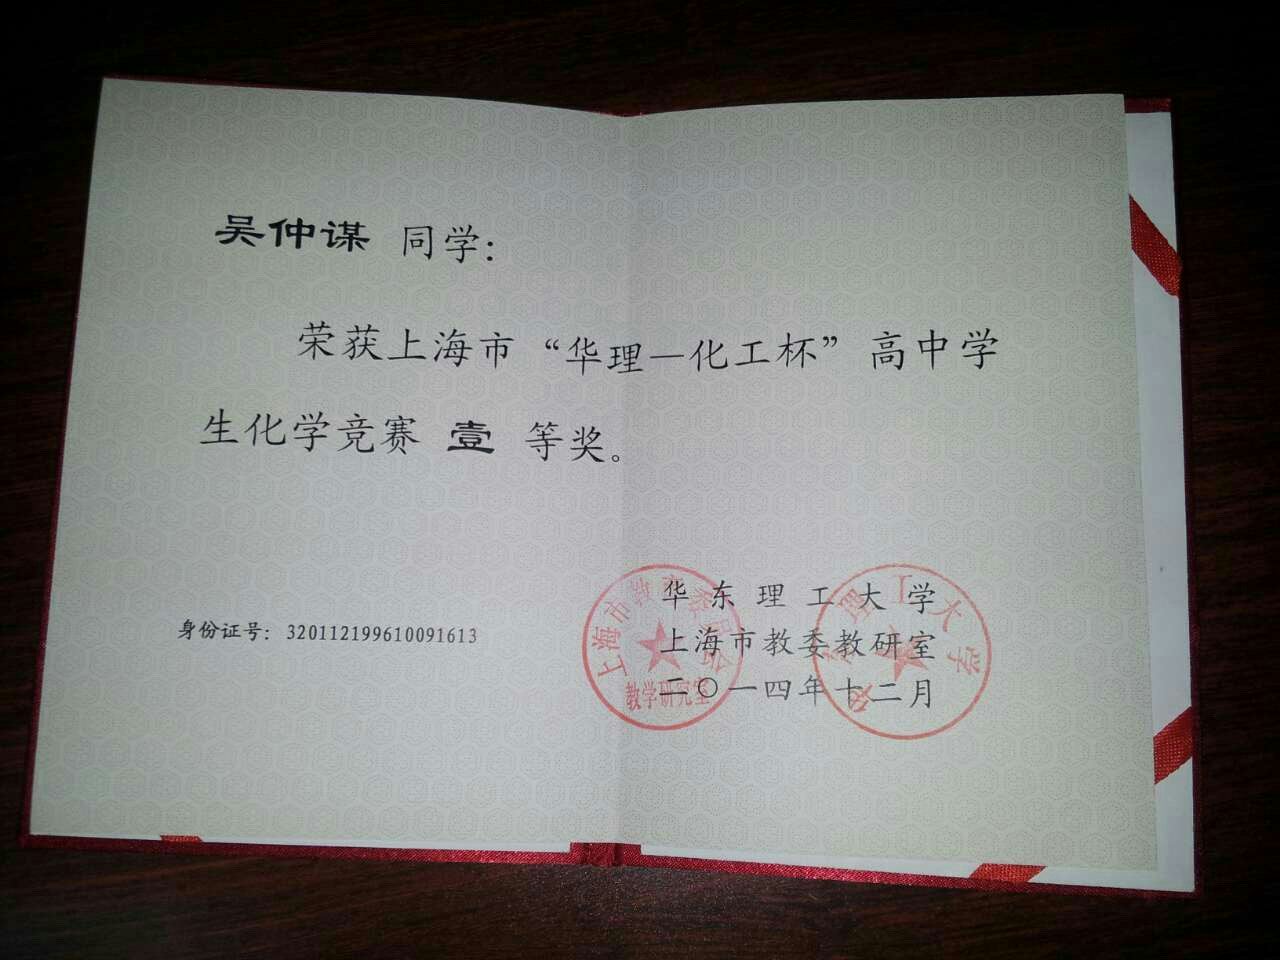 吴仲谋 同学：
荣获上海市“华理—化工杯”高中学
生化学竞赛 壹 等奖。
华东理工大学
身份证号：320112199610091613
上海市教委教研室
二〇一四年十二月
上海市教育委员会
教学研究室